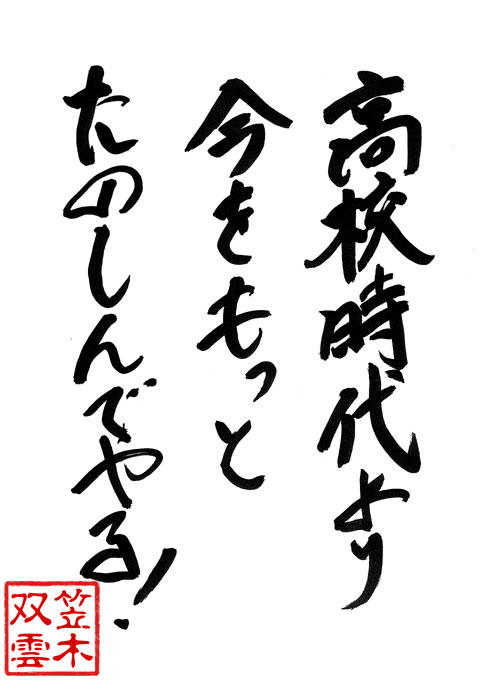 高校時代より
今をもっと
たのしんでやる!
笠木
双雲